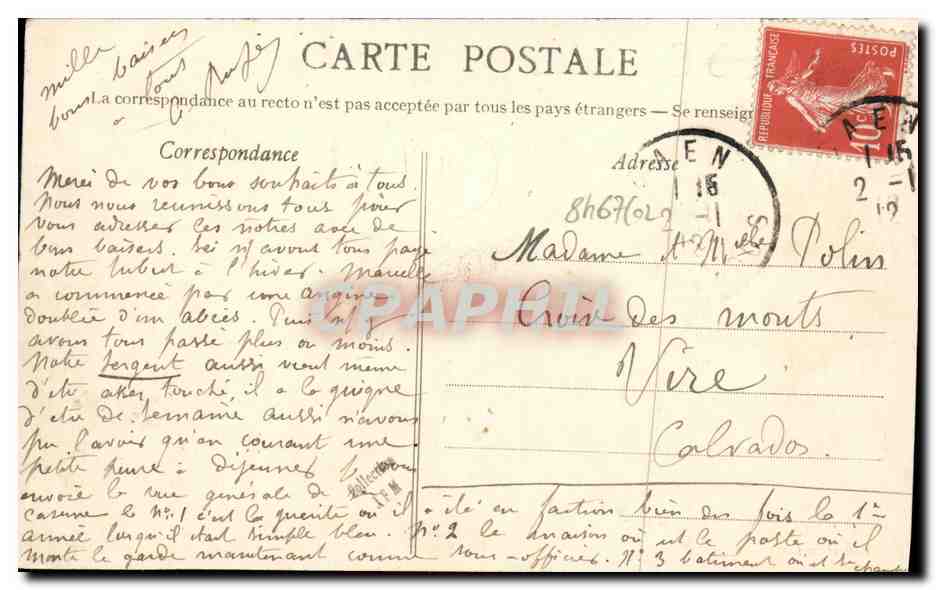 mille
bons baisers
à tous
CARTE POSTALE
La correspondance au recto n'est pas acceptée par tous les pays étrangers — Se renseign
REPUBLIQUE FRANÇAISE
POSTES
10
Correspondance
Merci de vos bons souhaits à tous.
Nous nous reunissons tous pour
vous adresser les notres avec de
bons baisers. Ici n/ avons tous payé
notre tribut à l'hiver. Marcelle
a commencé par une angine
doublée d'un abcès. Puis
avons tous passé plus ou moins.
Notre sergent aussi vient même
d'être touché, il a la guigne
d'être de semaine aussi n'avons
pu l'avoir qu'en courant une
petite heure à déjeuner Je vous
envoie la vue générale de
caserne le No 1 c'est la guerite où il a été en faction bien des fois la 1ere
année lorsqu'il était simple bleu. No 2 la maison où est le poste où il
monte la garde maintenant comme sous-officier. No 3 batiment où est sa chambre
Adresse
AEN
1 15
2 -1
AEN
1 15
2 -1
12
8h67(02
Madame & Melle Polin
Croix des monts
Vire
Calvados.
CPAPHIL
Collection